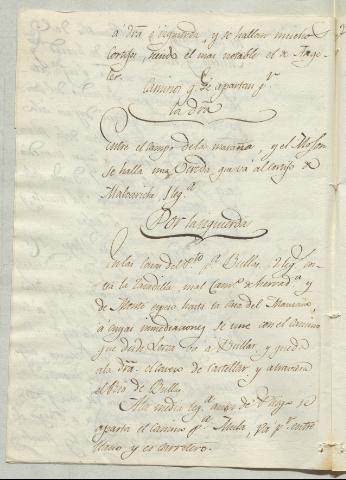 á dra. é izquierda, y se hallan muchos
Cortijos, siendo el mas notable el de
Caminos q. se apartan pr.
la dra.
Entre el campo de la maraña, y el
se halla una Vereda, que va al cortijo de
Malvariche, 1 leg.a
Por la izquierda
En las Casas del pa. Bullas, 2 leg.
mal Camo. de herrada. y
de Monte espeso hasta la Casa del
á cuyas inmediaciones se une con el Camino
que desde Lorca va á Bullas, y queda
á la dra. el de Castellar, y atraviesa
el Rio de Bullas
A la media leg.a antes de se
aparta el camino pa. Mula, va pr. entre
llano y es carretero.